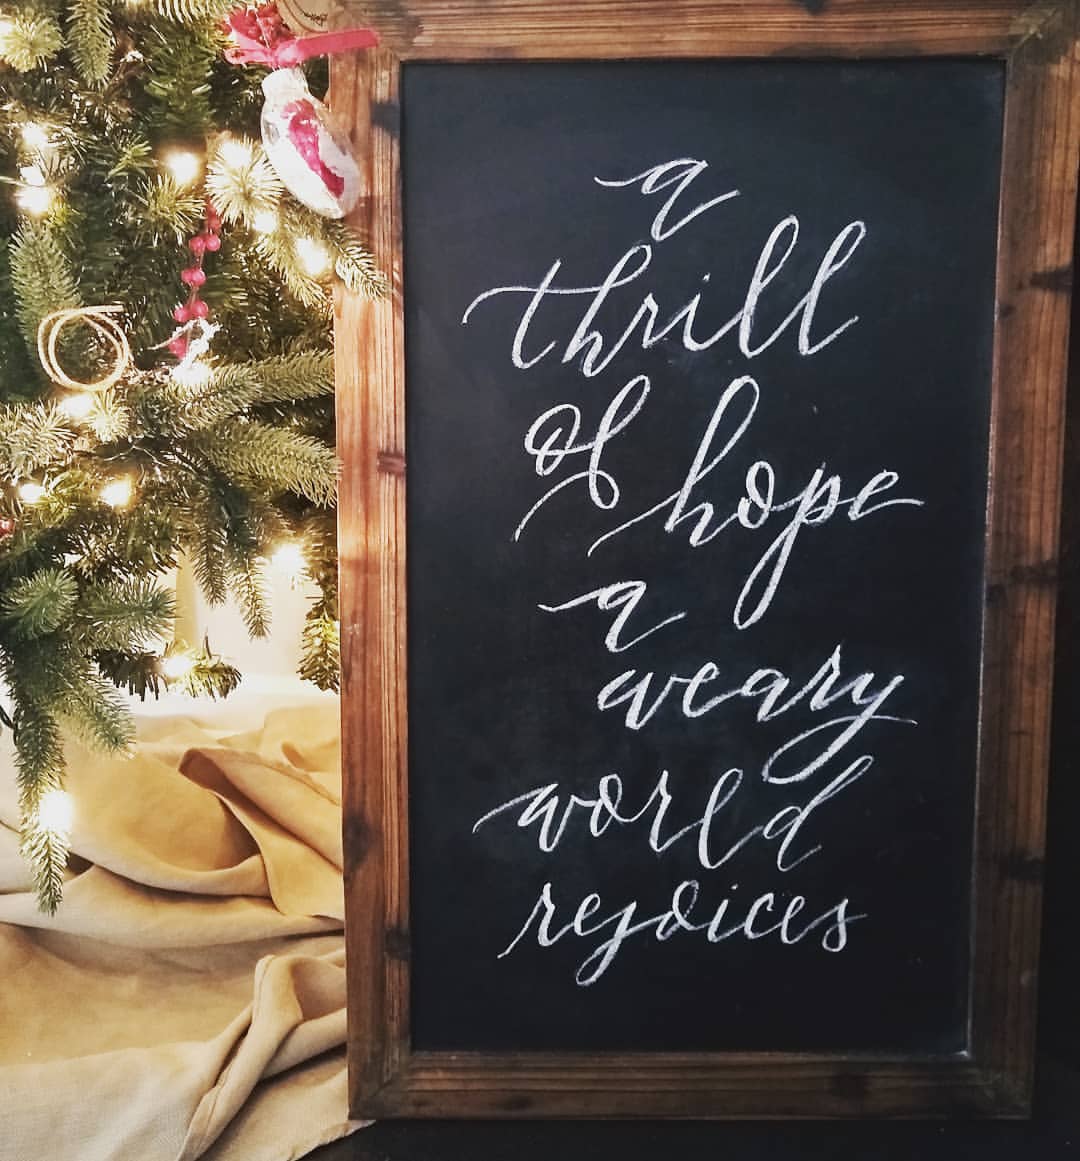 a
thrill
of hope
a
weary
world
rejoices